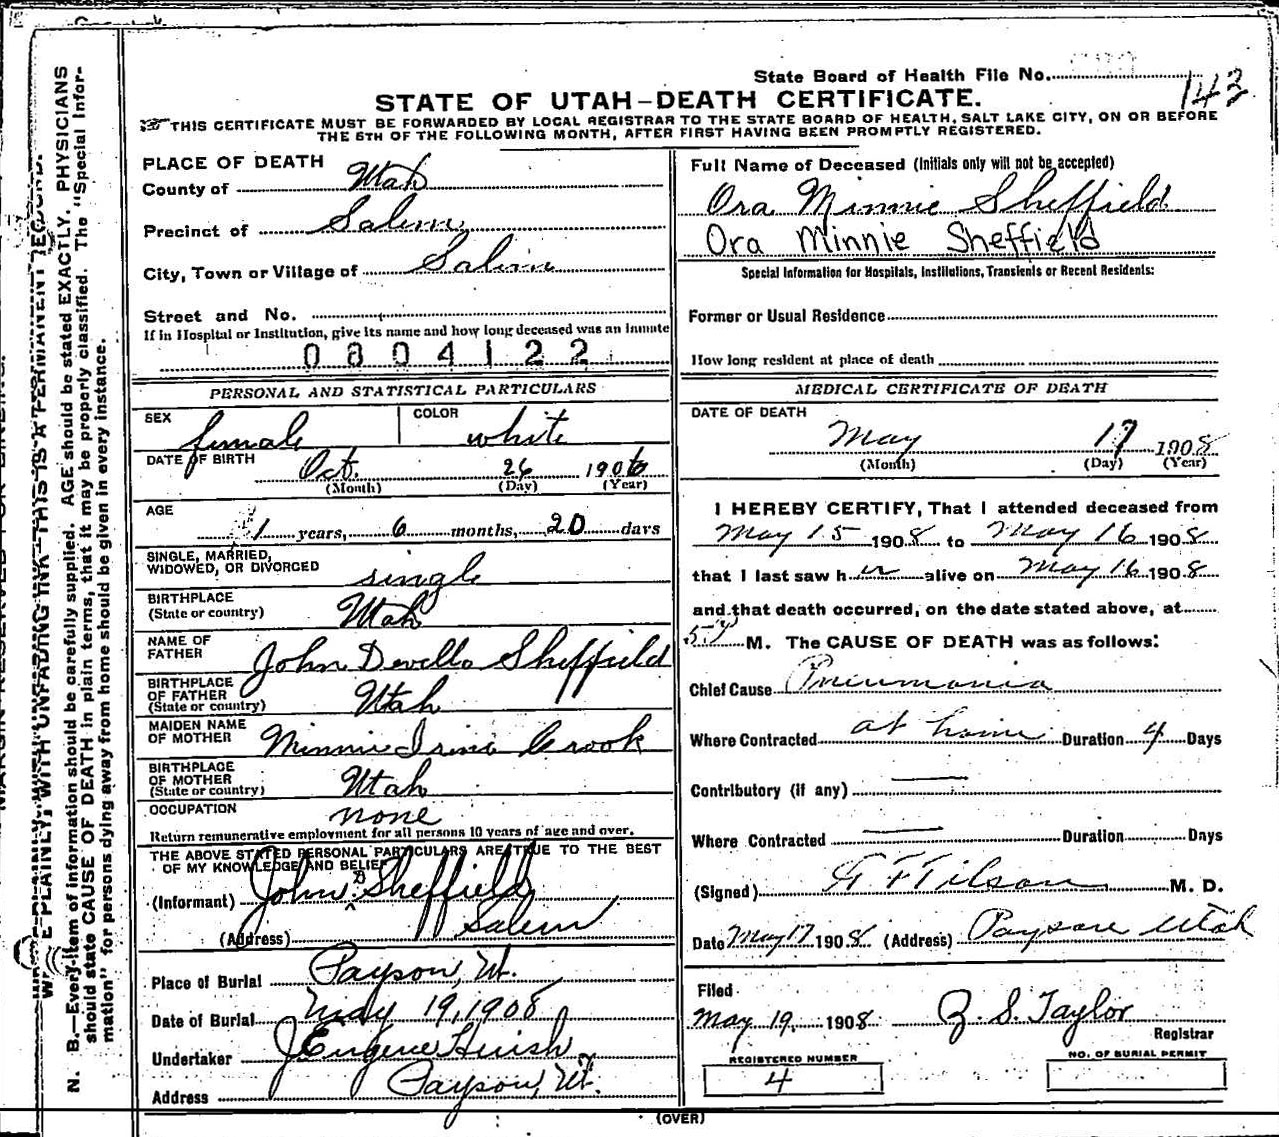 State Board of Health File No.
143
STATE OF UTAH-DEATH CERTIFICATE.
THIS CERTIFICATE MUST BE FORWARDED BY LOCAL REGISTRAR TO THE STATE BOARD OF HEALTH, SALT LAKE CITY, ON OR BEFORE
THE 5TH OF THE FOLLOWING MONTH, AFTER FIRST HAVING BEEN PROMPTLY REGISTERED.
PLACE OF DEATH
County of Utah
Precinct of Salem
City, Town or Village of Salem
Street and No.
If in Hospital or Institution, give its name and how long deceased was an inmate
0804122
PERSONAL AND STATISTICAL PARTICULARS
SEX female COLOR white
DATE OF BIRTH Oct. 26 1906
(Month) (Day) (Year)
AGE
1 years, 6 months, 20 days
SINGLE, MARRIED,
WIDOWED, OR DIVORCED single
BIRTHPLACE
(State or country) Utah
NAME OF
FATHER John Devello Sheffield
BIRTHPLACE
OF FATHER
(State or country) Utah
MAIDEN NAME
OF MOTHER Minnie Irina Crook
BIRTHPLACE
OF MOTHER
(State or country) Utah
OCCUPATION none
Return remunerative employment for all persons 10 years of age and over.
THE ABOVE STATED PERSONAL PARTICULARS ARE TRUE TO THE BEST
OF MY KNOWLEDGE AND BELIEF
(Informant) John D Sheffield
(Address) Salem
Place of Burial Payson, Ut.
Date of Burial May 19, 1908
Undertaker J Eugene Huish
Address Payson, Ut.
Full Name of Deceased (Initials only will not be accepted)
Ora Minnie Sheffield
Ora Minnie Sheffield
Special Information for Hospitals, Institutions, Transients or Recent Residents:
Former or Usual Residence
How long resident at place of death
MEDICAL CERTIFICATE OF DEATH
DATE OF DEATH
May 17 1908
(Month) (Day) (Year)
I HEREBY CERTIFY, That I attended deceased from
May 15 1908 to May 16 1908
that I last saw her alive on May 16 1908
and that death occurred, on the date stated above, at
M. The CAUSE OF DEATH was as follows:
Chief Cause Pneumonia
Where Contracted at home Duration 4 Days
Contributory (if any) —
Where Contracted — Duration Days
(Signed) Tilson M. D.
Date May 17 1908 (Address) Payson Utah
Filed
May 19, 1908 Z. S. Taylor
Registrar
REGISTERED NUMBER
4
NO. OF BURIAL PERMIT
(OVER)
WRITE PLAINLY, WITH UNFADING INK—THIS IS A PERMANENT RECORD.
N. B.—Every item of information should be carefully supplied. AGE should be stated EXACTLY. PHYSICIANS
should state CAUSE OF DEATH in plain terms, that it may be properly classified. The "Special Infor-
mation" for persons dying away from home should be given in every instance.